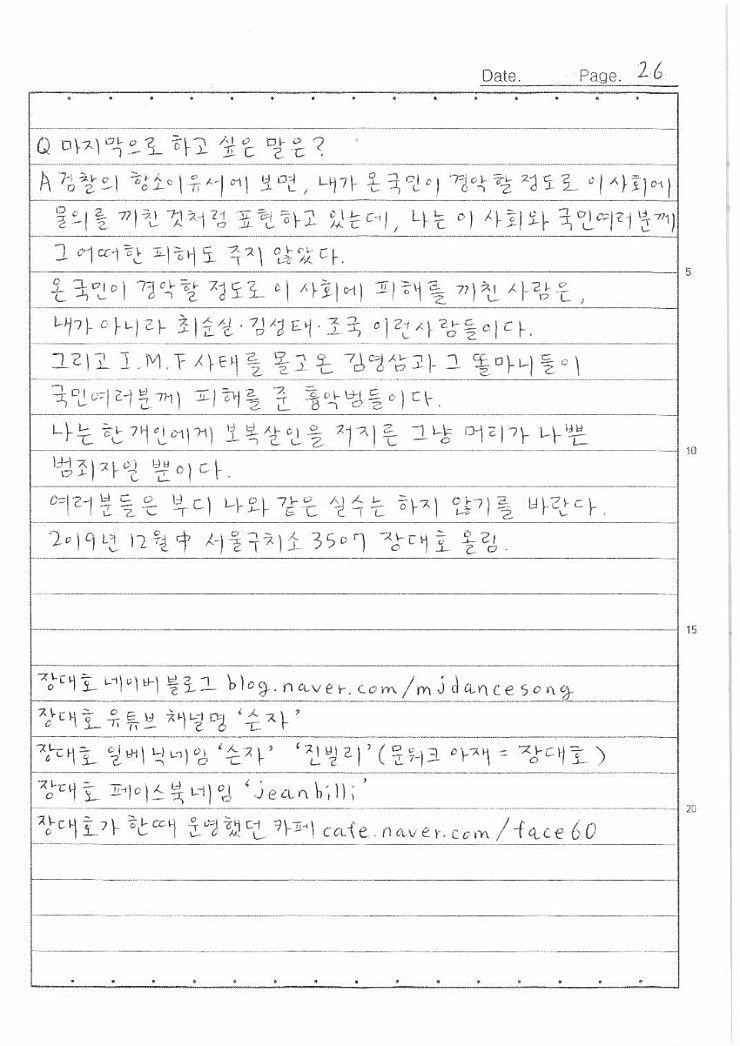 Date. Page. 26
Q 마지막으로 하고 싶은 말은?
A 검찰의 항소이유서에 보면, 내가 온국민이 경악할 정도로 이사회에
물의를 끼친 것처럼 표현하고 있는데, 나는 이 사회와 국민여러분께
그 어떠한 피해도 주지 않았다.
5
온 국민이 경악할 정도로 이 사회에 피해를 끼친 사람은,
내가 아니라 최순실·김성태·조국 이런사람들이다.
그리고 I.M.F 사태를 몰고온 김영삼과 그 똘마니들이
국민여러분께 피해를 준 흉악범들이다.
나는 한 개인에게 보복살인을 저지른 그냥 머리가 나쁜
10
범죄자일 뿐이다.
여러분들은 부디 나와 같은 실수는 하지 않기를 바란다.
2019년 12월 中 서울구치소 3507 장대호 올림.
15
장대호 네이버 블로그 blog.naver.com/mjdancesong
장대호 유튜브 채널명 '슨자'
장대호 일베 닉네임 '슨자' '진빌리' (문워크 아재 = 장대호)
장대호 페이스북네임 'jeanbilli'
20
장대호가 한때 운영했던 카페 cafe.naver.com/face60